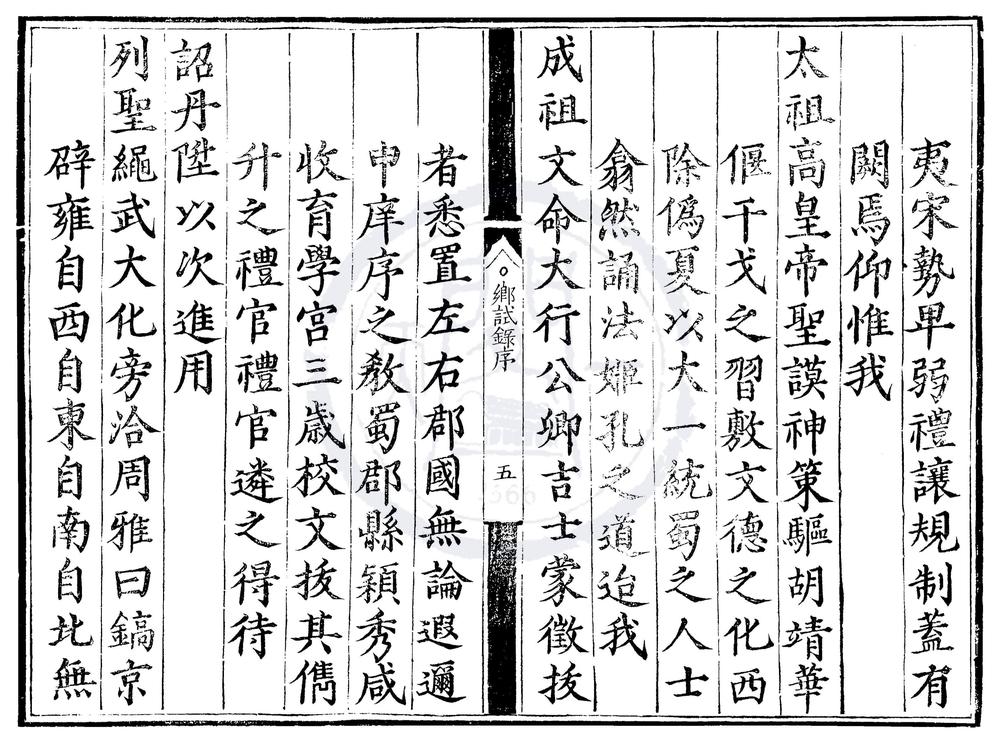 夷宋勢卑弱禮讓規制蓋有
闕焉仰惟我
太祖高皇帝聖謨神策驅胡靖華
偃干戈之習敷文德之化西
除僞夏以大一統蜀之人士
翕然誦法姬孔之道迨我
成祖文命大行公卿吉士蒙徵拔
鄉試錄序
五
者悉置左右郡國無論遐邇
申庠序之教蜀郡縣穎秀咸
收育學宮三歲校文拔其儁
升之禮官禮官遴之得待
詔丹陛以次進用
列聖繩武大化旁洽周雅曰鎬京
辟雍自西自東自南自北無